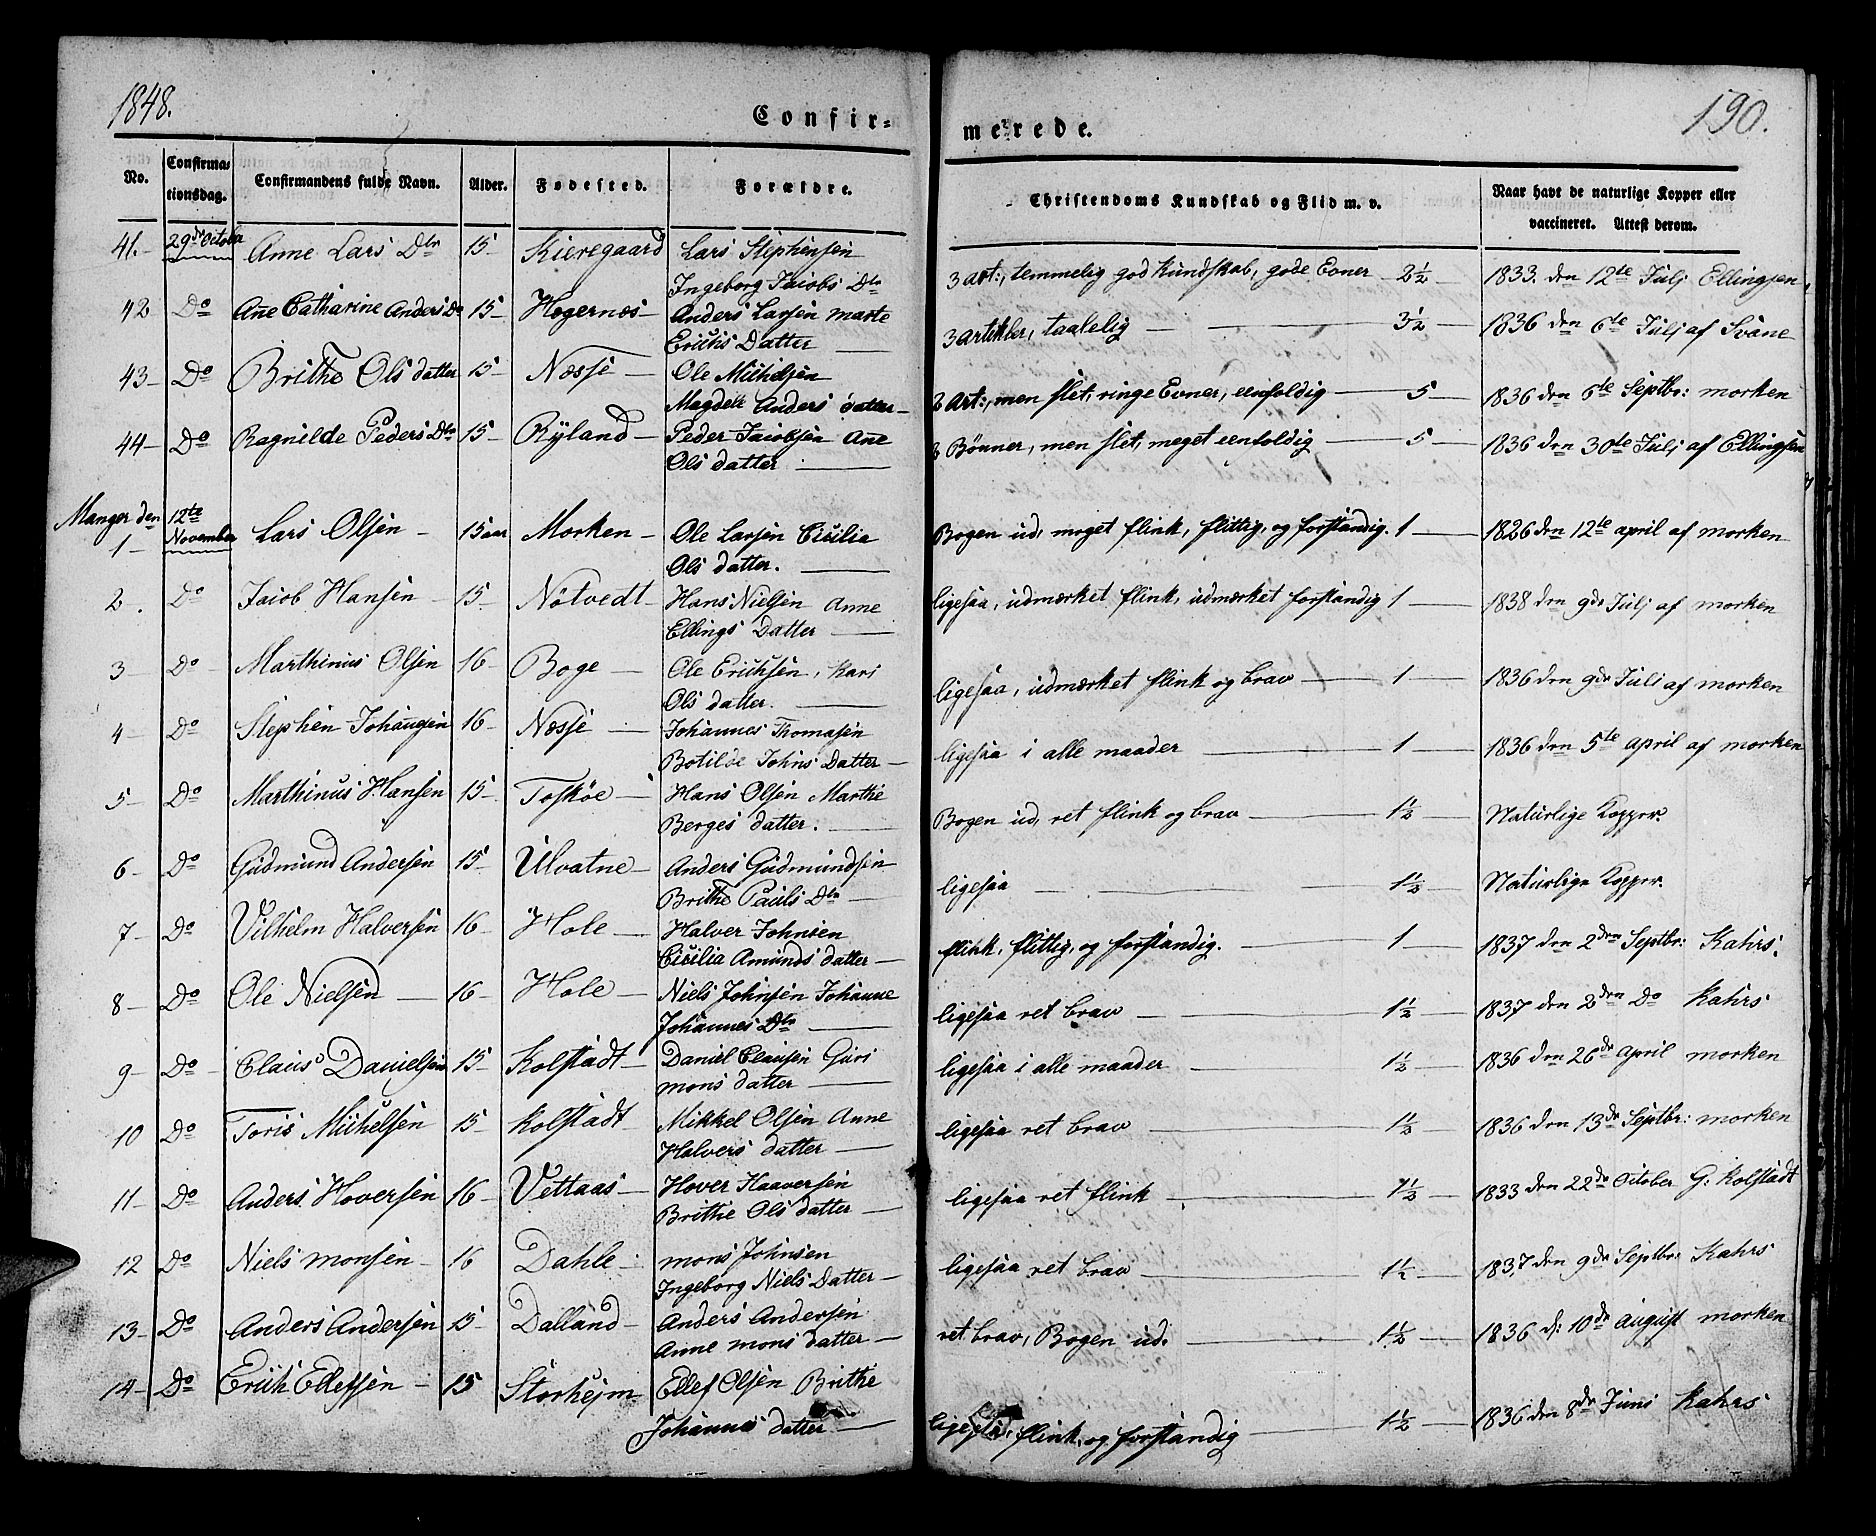 1848.
Confir-
merede.
190.
No.
Confirmationsdag.
Confirmandens fulde Navn.
Alder.
Fødested.
Forældre.
Christendoms Kundskab og Flid m. v.
Naar havt de naturlige Kopper eller
vaccineret. Attest derom.
41.- 29de October Anne Lars Dtr 15- Kieregaard Lars Stephensen
Ingeborg Jacobs Dtr
3 Art:, temmelig god Kundskab, gode Evner — 2½ — 1833. den 12te Julj Ellingsen
42 Do Ane Catharine Anders Do 15- Hegernæs- Anders Larsen Marte
Erichs Datter —
3 Artikler, taalelig — 3½ — 1836 den 6te Julj af Svane
43- Do Brithe Ols datter 15- Næsse — Ole Michelsen
Magdele Anders datter-
3 Art:, men slet, ringe Evner, eenfoldig — 5 — 1836 den 6te Septbr: Morken
44- Do Ragnilde Peders Dtr 15- Ryland- Peder Jacobsen Ane
Ols datter —
3 Bønner, men slet, meget eenfoldig — 5 — 1836 den 30te Julj af Ellingsen
Manger den 12te
1- November Lars Olsen - 15 aar Morken- Ole Larsen Cicilia
Ols datter. —
Bogen ud, meget flink, flittig, og forstandig. 1 — 1826 den 12te april af morken
2. Do Jacob Hansen 15- Nøtvedt- Hans Nielsen Anne
Ellings Datter —
ligesaa, udmærket flink, udmærket forstandig 1 — 1838 den 9de Julj af morken
3 - Do Marthinus Olsen 16- Boge — Ole Erichsen, Kari
Ols datter. —
ligesaa, udmærket flink og brav — 1 — 1836 den 9de Juli af morken
4- Do Stephen Johansen 16- Næsse — Johannes Thomasen
Botilde Johns Datter-
ligesaa i alle maader — 1 — 1836 den 5te April af morken
5- Do Marthinus Hansen 15- Toskøe — Hans Olsen Marthe
Berges datter. —
Bogen ud, ret flink og brav — 1½ — Naturlige Kopper.
6- Do Gudmund Andersen 15- Ulvatne- Anders Gudmundsen
Brithe Pauls Dtr —
ligesaa — 1½ — Naturlige Kopper.
7- Do Vilhelm Halversen 16- Hole- Halver Johnsen
Cicilia Amunds datter-
flink, flittig, og forstandig. — 1 — 1837 den 2den Septbr: Kahrs.
8- Do Ole Nielsen — 16- Hole — Niels Johnsen Johanne
Johannes Dtr —
ligesaa ret brav — 1½ — 1837 den 2den Do Kahrs
9- Do Claus Danielsen 15- Kolstadt- Daniel Clausen Guri
mons datter —
ligesaa i alle maader — 1½ — 1836 den 26de April morken
10 Do Toris Michelsen 15- Kolstadt Mikkel Olsen Anne
Halvers datter —
ligesaa ret brav — 1½ — 1836 den 13de Septbr: morken
11- Do Anders Hoversen 16- Vettaas- Hover Haaversen
Brithe Ols datter —
ligesaa ret flink — 1½ — 1833 den 22de October G: Kolstadt
12 Do Niels monsen - 16 Dahle - mons Johnsen
Ingeborg Niels Datter-
ligesaa ret brav — 1½ — 1837 den 9de Septbr: Kahrs
13- Do Anders Andersen 15- Dalland- Anders Andersen
Anne mons datter —
ret brav, Bogen ud. — 1½ — 1836 d: 10de August morken
14- Do Erich Ellefsen - 15 Storhejm Ellef Olsen Brithe
Johannes datter —
ligesaa, flink, og forstandig — 1½ — 1836 den 8de Juni Kahrs